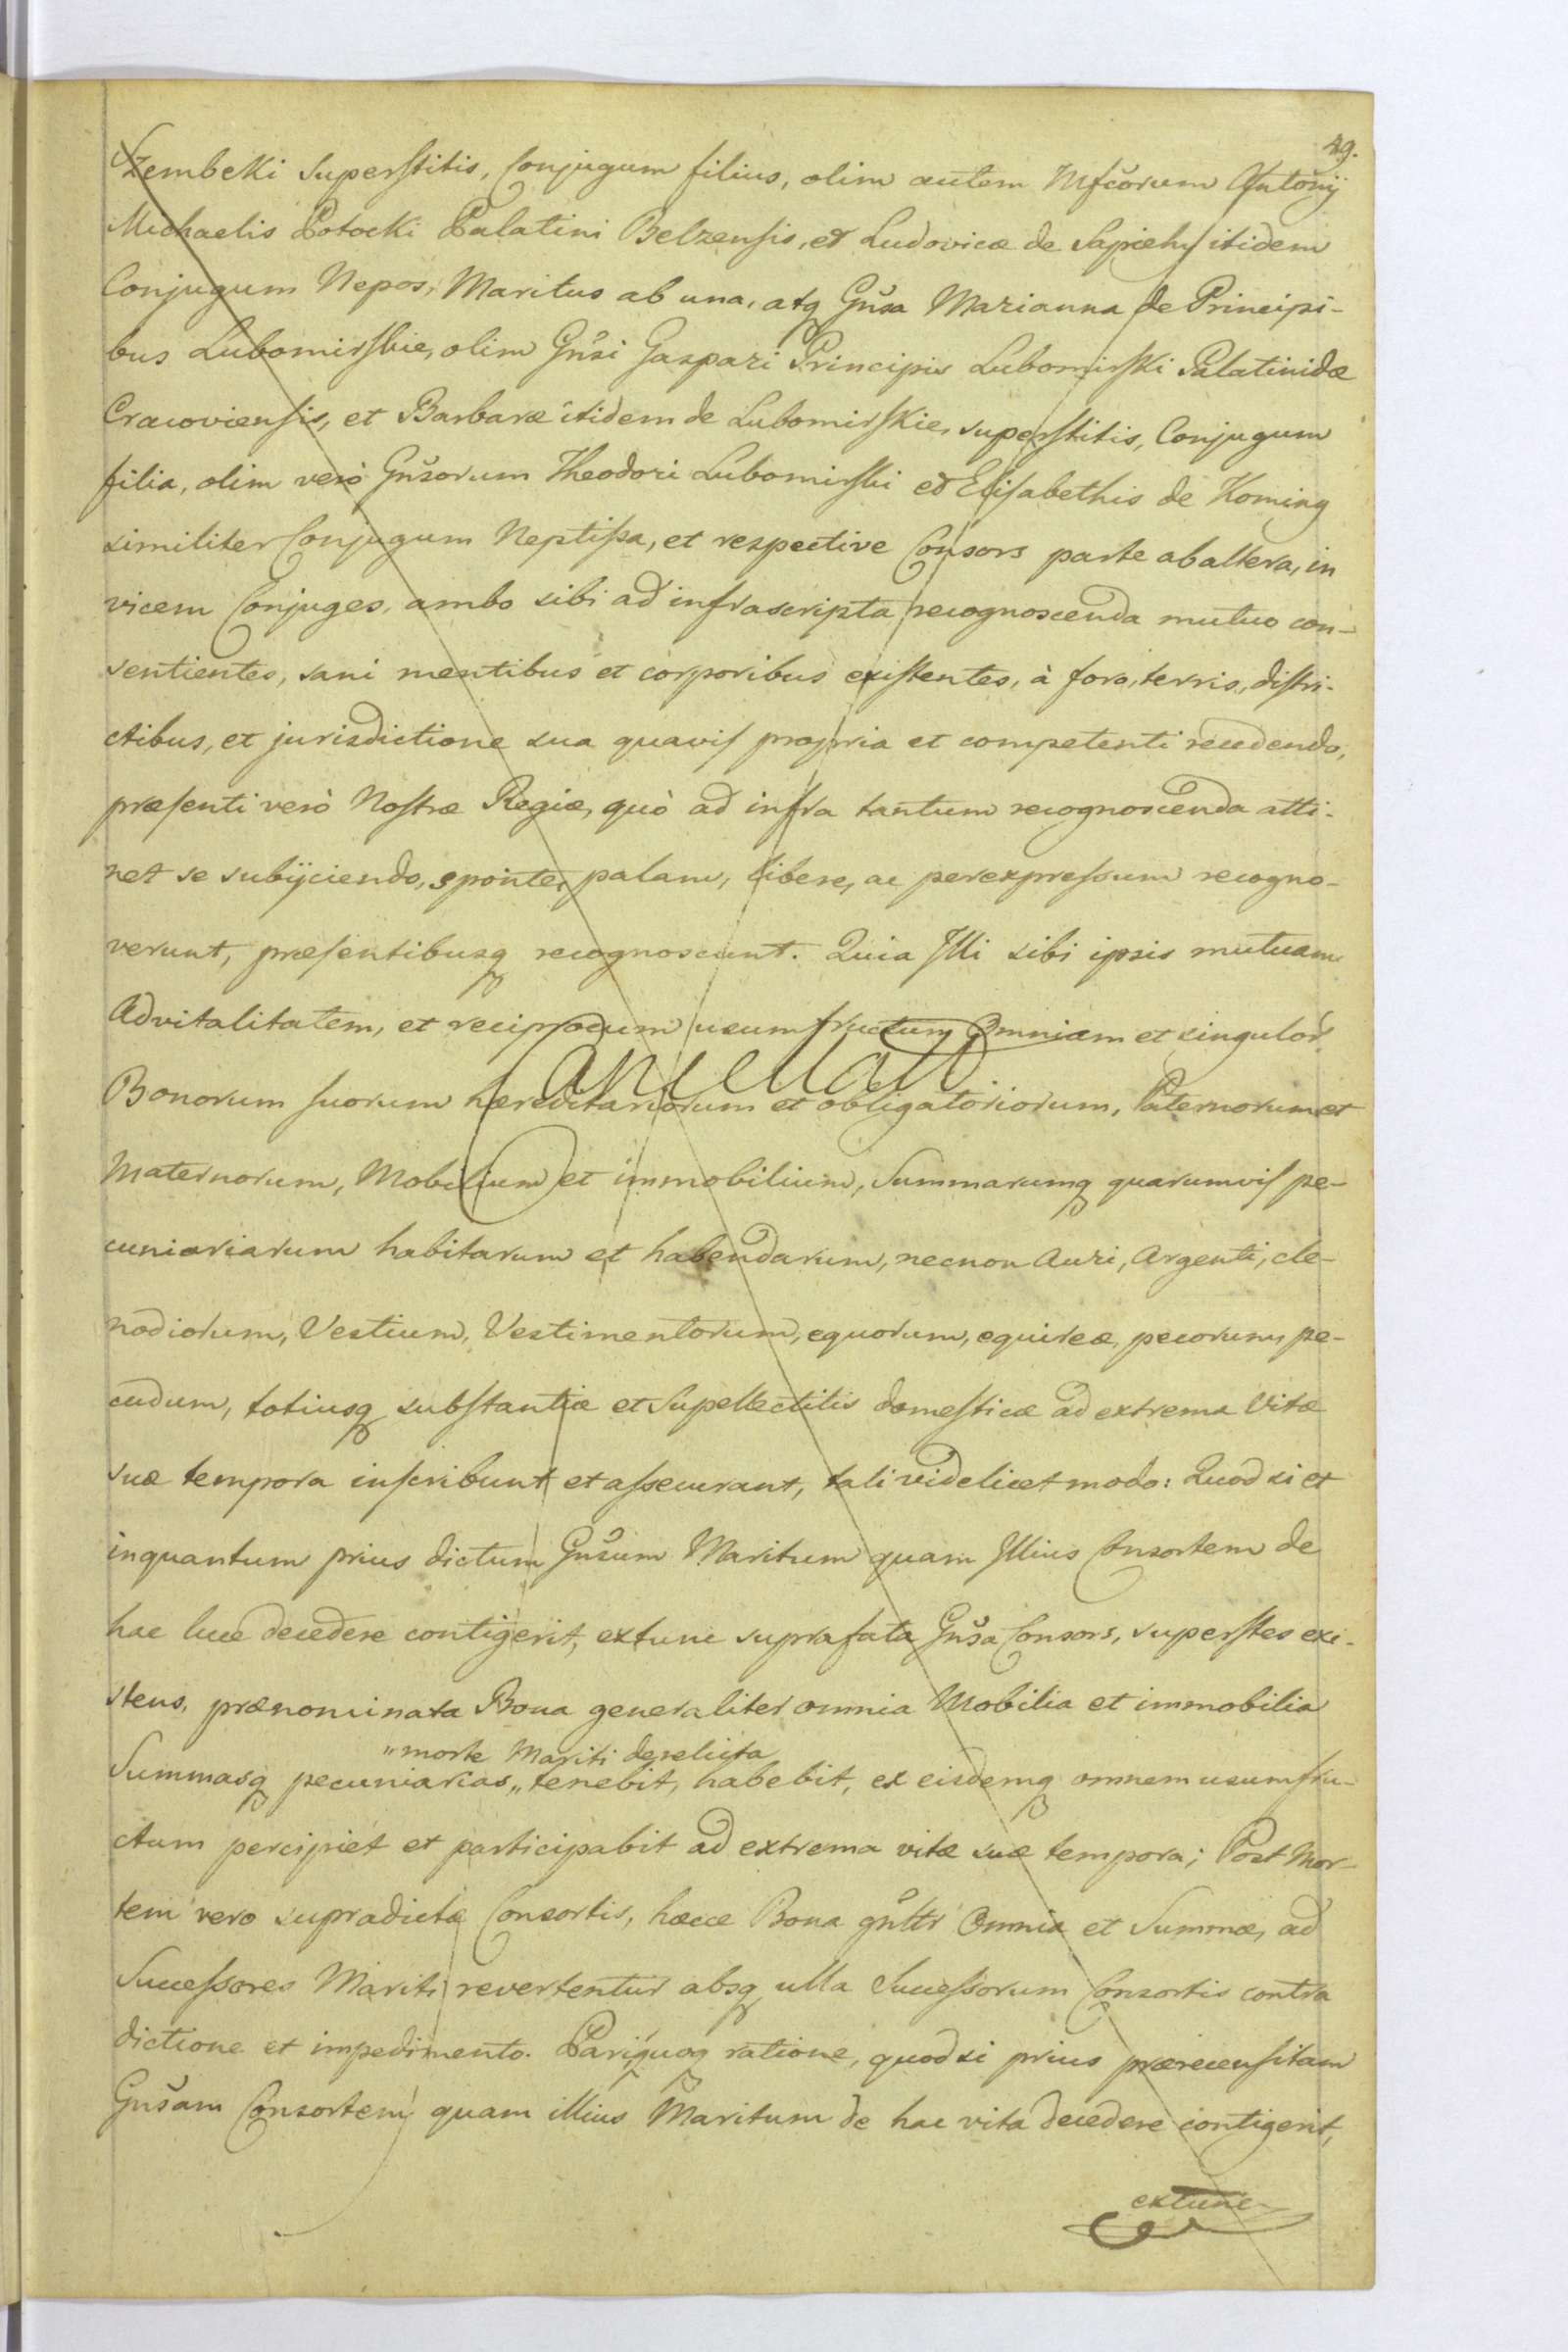 29.
Szembeki Superstitis, Conjugum filius, olim autem Mfcorum Antonij
Michaelis Potocki Palatini Belzensis, et Ludovicæ de Sapiehy itidem
Conjugum Nepos, Maritus ab una, atq Gnsa Marianna de Principi-
bus Lubomirskie, olim Gnsi Gaspari Principis Lubomirski Palatinidæ
Cracoviensis, et Barbaræ itidem de Lubomirskie, superstitis, Conjugum
filia, olim verò Gnsorum Theodori Lubomirski et Elisabethis de Koming
similiter Conjugum Neptissa, et respective Consors parte ab altera, in
vicem Conjuges, ambo sibi ad infrascripta recognoscenda mutuo con-
sentientes, sani mentibus et corporibus existentes, à foro, terris, distri-
ctibus, et jurisdictione sua quavis propria et competenti recedendo,
præsenti verò Nostræ Regiæ, quò ad infra tantum recognoscenda atti-
net se subijciendo, sponte, palam, libere, ac per expressum recogno-
verunt, præsentibusq recognoscunt. Quia Illi sibi ipsis mutuam
Advitalitatem, et reciprocum usumfructum Omniam et singulor
Cancellatt
Bonorum suorum hæreditariorum et obligatoriorum, Paternorum et
Maternorum, Mobilium et immobilium, Summarumq quarumvis pe-
cuniariarum habitarum et habendarum, necnon Auri, Argenti, cle-
nodiorum, Vestium, Vestimentorum, equorum, equireæ, pecorum, pe-
cudum, totiusq substantiæ et Supellectilis domesticæ ad extrema Vitæ
suæ tempora inscribunt et assecurant, tali videlicet modo: Quod si et
inquantum prius dictum Gnsum Maritum quam Illius Consortem de
hac luce decedere contigerit, extunc suprafata Gnsa Consors, superstes exi-
stens, prænominata Bona generaliter omnia Mobilia et immobilia
"morte Mariti derelicta
Summasq pecuniarias „ tenebit, habebit, ex eisdemq omnem usumfru-
ctum percipiet et participabit ad extrema vitæ suæ tempora; Post Mor-
tem vero supradictæ Consortis, hæcce Bona gnltr Omnia et Summæ, ad
Successores Mariti revertentur absq ulla Successorum Consortis contra
dictione et impedimento. Pariquoq ratione, quod si prius prærecensitam
Gnsam Consortem, quam illius Maritum de hac vita decedere contigerit,
extunc